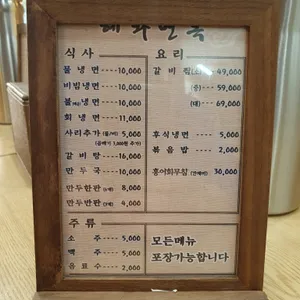 식사
물냉면 ---- 10,000
비빔냉면 ---- 10,000
불냉면 ---- 10,000
회냉면 ---- 11,000
사리추가 5,000
(곱빼기 1,000원 추가)
갈비탕 ---- 16,000
만두국 ---- 10,000
만두한판 8,000
만두반판 4,000
주류
소주 ---- 5,000
맥주 ---- 5,000
음료수 ---- 2,000
요리
갈비찜(소) 49,000
(중) ---- 59,000
(대) ---- 69,000
후식냉면 ---- 5,000
볶음밥 ---- 2,000
홍어회무침 30,000
모든메뉴
포장가능합니다